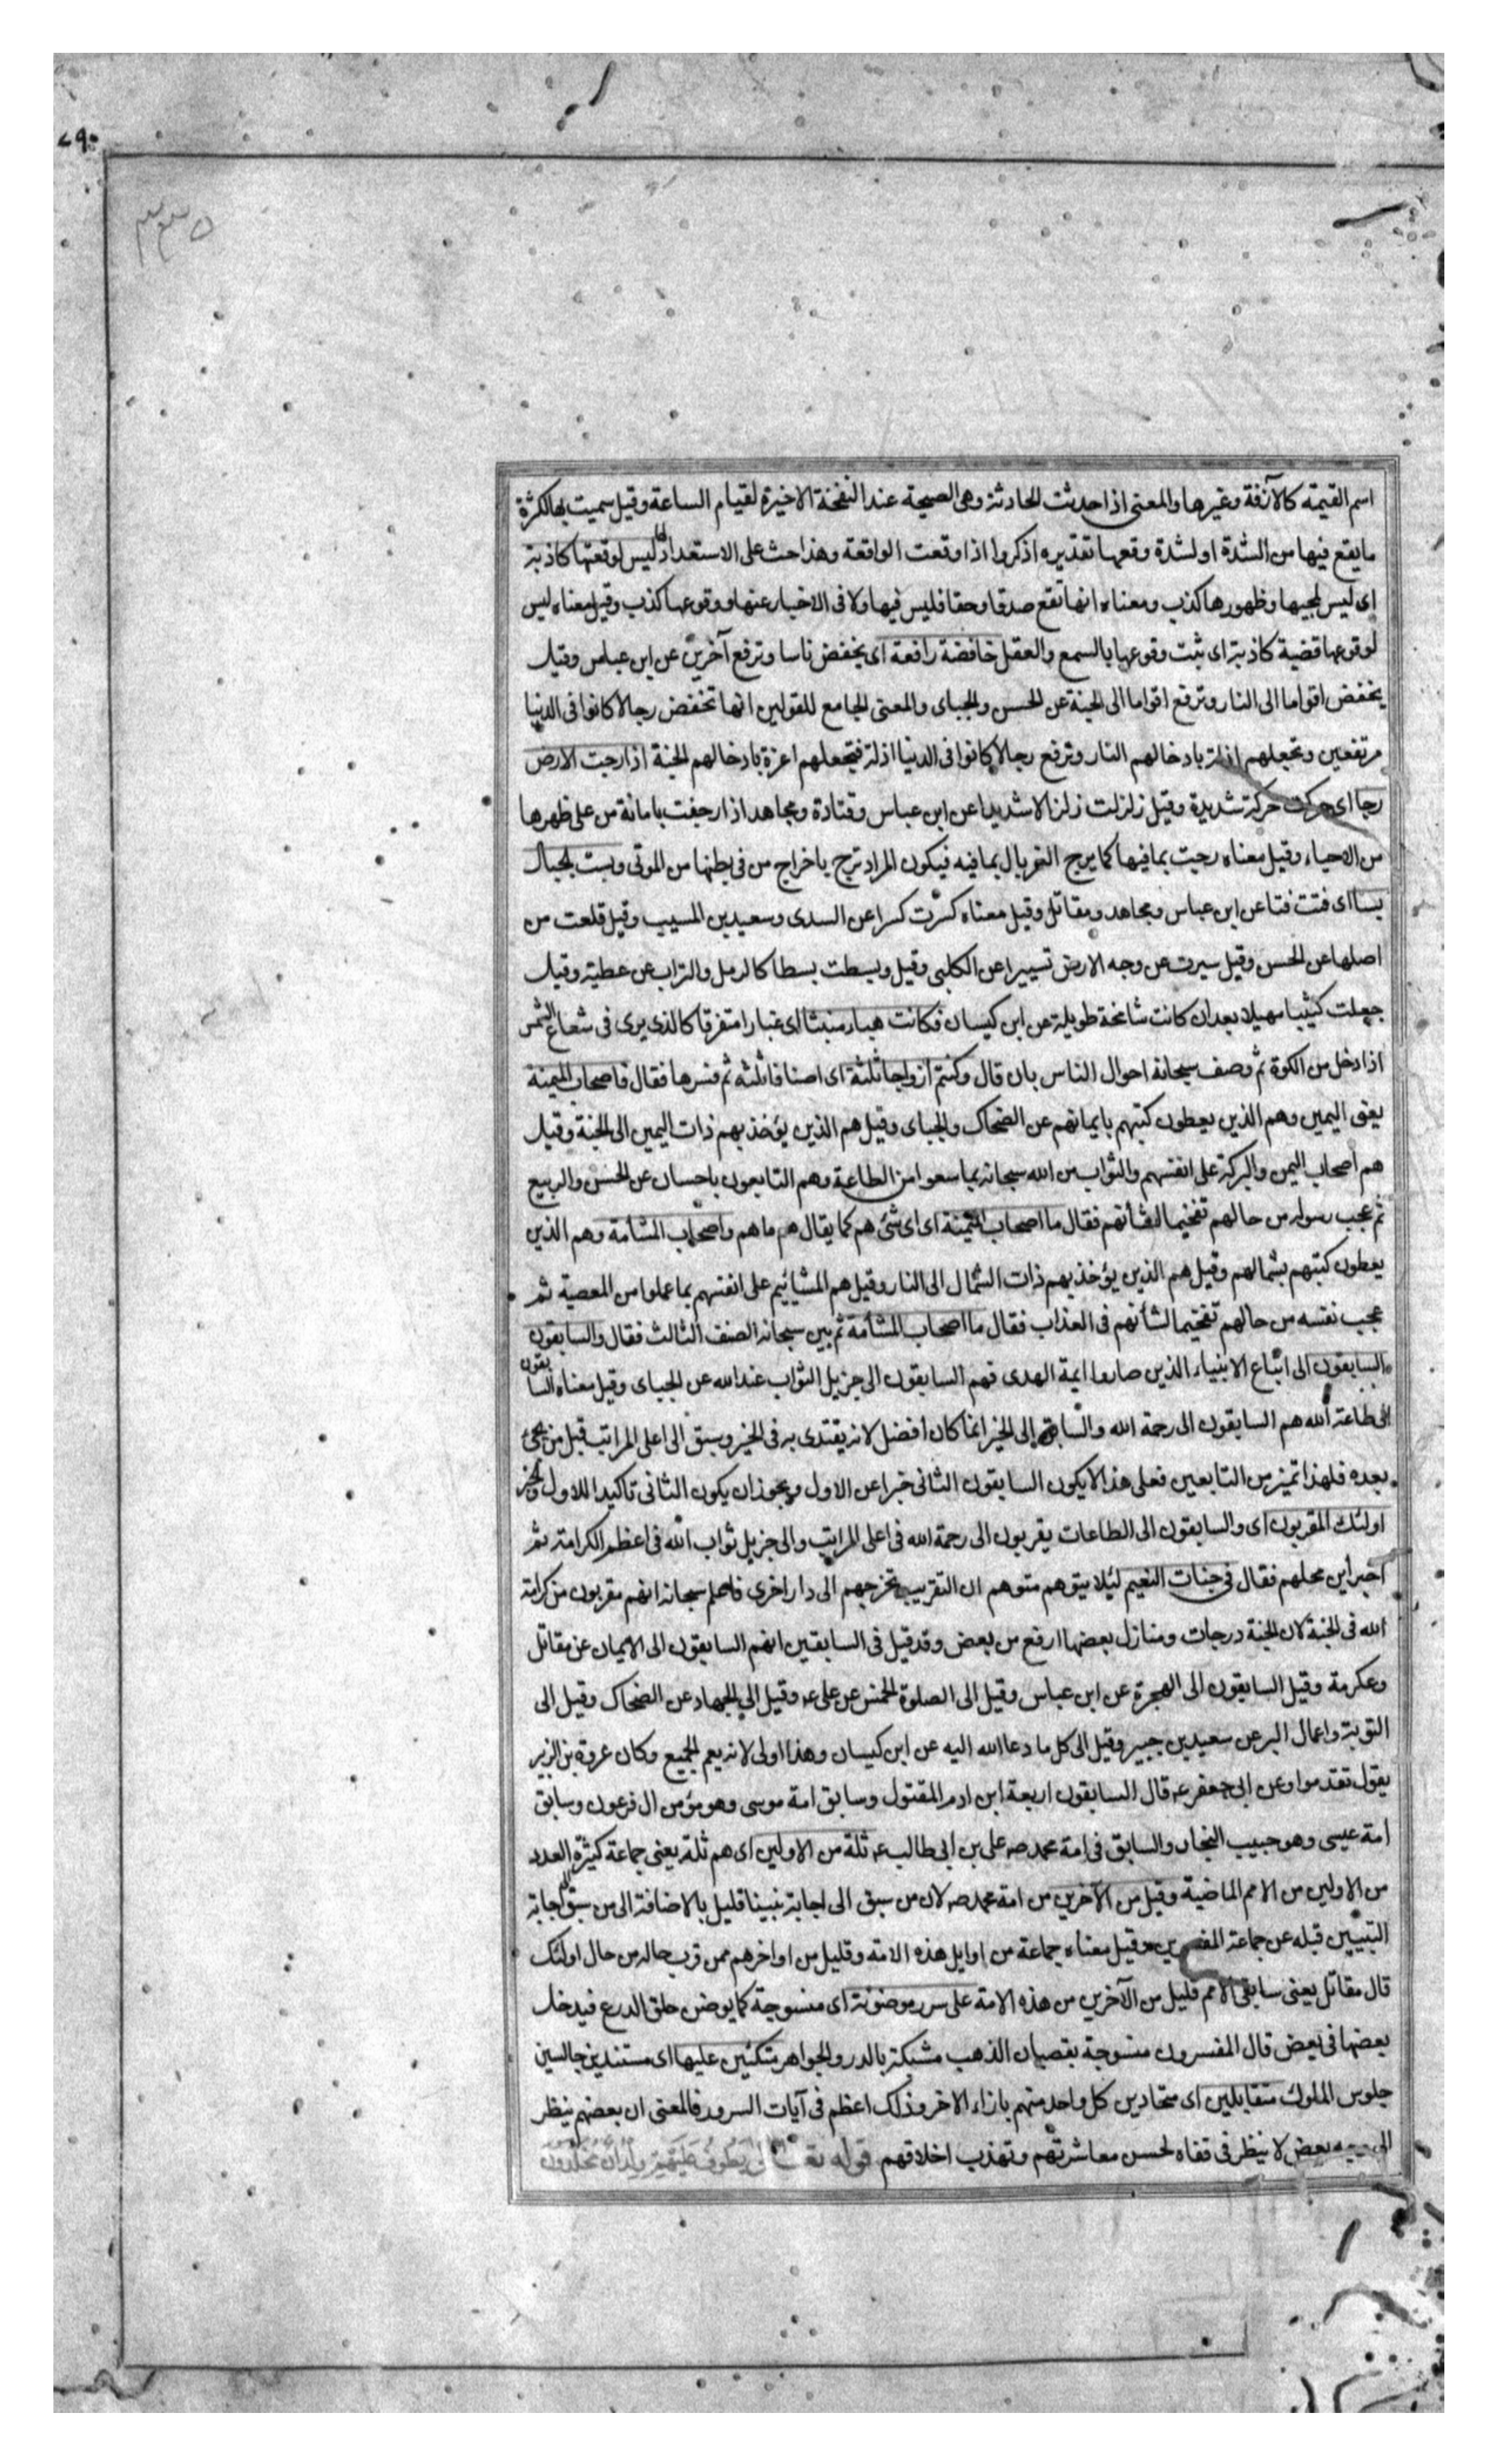 ٧٩٠
٣٣٥
اسم القيمة كالآزفة وغيرها والمعنى اذا حدثت الحادثة وهى الصيحة عند النفخة الاخيرة لقيام الساعة وقيل سميت بها لكثرة
ما يقع فيها من الشدة او لشدة وقعها تقديره اذكروا اذا وقعت الواقعة وهذا حث على الاستعداد لها ليس لوقعتها كاذبة
اى ليس لمجيها وظهورها كذب ومعناه انها تقع صدقا وحقا فليس فيها ولا فى الاخبار عنها ووقوعها كذب وقيل معناه ليس
لوقوعها قضية كاذبة اى ثبت وقوعها بالسمع والعقل خافضة رافعة اى يخفض ناسا وترفع آخرين عن ابن عباس وقيل
يخفض اقواما الى النار وترفع اقواما الى الجنة عن الحسن والجباى والمعنى الجامع للقولين انها تخفض رجالا كانوا فى الدنيا
مرتفعين وتجعلهم اذلة بادخالهم النار وترفع رجالا كانوا فى الدنيا اذلة فتجعلهم اعزة بادخالهم الجنة اذا رجت الارض
رجا اى حركت حركة شديدة وقيل زلزلت زلزالا شديدا عن ابن عباس وقتادة ومجاهد اذا رجفت بامانة من على ظهرها
من الاحياء وقيل معناه رجت بما فيها كما يرج الغربال بما فيه فيكون المراد ترج باخراج من فى بطنها من الموتى وبست الجبال
بسا اى فتت فتا عن ابن عباس ومجاهد ومقاتل وقيل معناه كسرت كسرا عن السدى وسعيد بن المسيب وقيل قلعت من
اصلها عن الحسن وقيل سيرت عن وجه الارض تسييرا عن الكلبى وقيل وبسطت بسطا كالرمل والتراب عن عطية وقيل
جعلت كثيبا مهيلا بعد ان كانت شامخة طويلة عن ابن كيسان فكانت هباء منبثا اى غبارا متفرقا كالذى يرى فى شعاع الشمس
اذا دخل من الكوة ثم وصف سبحانه احوال الناس بان قال وكنتم ازواجا ثلثة اى اصنافا ثلثه ثم فسرها فقال فاصحاب الميمنة
يعنى اليمين وهم الذين يعطون كتبهم بايمانهم عن الضحاك والجباى وقيل هم الذين يؤخذ بهم ذات اليمين الى الجنة وقيل
هم اصحاب اليمن والبركة على انفسهم والثواب من الله سبحانه بما سعوا من الطاعة وهم التابعون باحسان عن الحسن والربيع
ثم عجب رسوله من حالهم تفخيما لشأنهم فقال ما اصحاب الميمنة اى اى شئ هم كما يقال هم ما هم واصحاب المشأمة وهم الذين
يعطون كتبهم بشمالهم وقيل هم الذين يؤخذ بهم ذات الشمال الى النار وقيل هم المشائيم على انفسهم بما عملوا من المعصية ثم
عجب نفسه من حالهم تفخيما لشأنهم فى العذاب فقال ما اصحاب المشأمة ثم بين سبحانه الصنف الثالث فقال والسابقون
السابقون الى اتباع الانبياء الذين صاروا ايمة الهدى فهم السابقون الى جزيل الثواب عند الله عن الجباى وقيل معناه السابقون
الى طاعة الله هم السابقون الى رحمة الله والسابق إلى الخير انما كان افضل لانه يقتدى به فى الخير وسبق الى اعلى المراتب قبل من يجئ
بعده فلهذا تميز من التابعين فعلى هذا لا يكون السابقون الثانى خبرا عن الاول ويجوز ان يكون الثانى تاكيدا للاول والخبر
اولئك المقربون اى والسابقون الى الطاعات يقربون الى رحمة الله فى اعلى المراتب والى جزيل ثواب الله فى اعظم الكرامة ثم
اخبر اين محلهم فقال فى جنات النعيم لئلا يتوهم متوهم ان التقريب تخرجهم الى دار اخرى فاعلم سبحانه انهم مقربون من كرامة
الله فى الجنة لان الجنة درجات ومنازل بعضها ارفع من بعض وقد قيل فى السابقين انهم السابقون الى الايمان عن مقاتل
وعكرمة وقيل السابقون الى الهجرة عن ابن عباس وقيل الى الصلوة الخمس عن على ع وقيل الى الجهاد عن الضحاك وقيل الى
التوبة واعمال البر عن سعيد بن جبير وقيل الى كل ما دعا الله اليه عن ابن كيسان وهذا اولى لانه يعم الجميع وكان عروة بن الزبير
يقول تقدموا وعن ابى جعفر ع قال السابقون اربعة ابن ادم المقتول وسابق امة موسى وهو مؤمن ال فرعون وسابق
امة عيسى وهو حبيب النجار والسابق فى امة محمد ص على بن ابى طالب ع ثلة من الاولين اى هم ثلة يعنى جماعة كثيرة العدد
من الاولين من الامم الماضية وقيل من الآخرين من امة محمد ص لان من سبق الى اجابة نبينا قليل بالاضافة الى من سبق الى اجابة
النبيين قبله عن جماعة المفسرين وقيل معناه جماعة من اوايل هذه الامة وقليل من اواخرهم ممن قرب حاله من حال اولئك
قال مقاتل يعنى سابقى الامم قليل من الآخرين من هذه الامة على سرر موضونة اى منسوجة كما يوضن حلق الدرع فيدخل
بعضها فى بعض قال المفسرون منسوجة بقضبان الذهب مشبكة بالدر والجواهر متكئين عليها اى مستندين جالسين
جلوس الملوك متقابلين اى متحاذين كل واحد منهم بازاء الاخر وذلك اعظم فى آيات السرور فالمعنى ان بعضهم ينظر
الى وجه بعض لا ينظر فى قفاه لحسن معاشرتهم وتهذب اخلاقهم قوله تعالى يَطُوفُ عَلَيْهِمْ وِلْدَانٌ مُخَلَّدُونَ